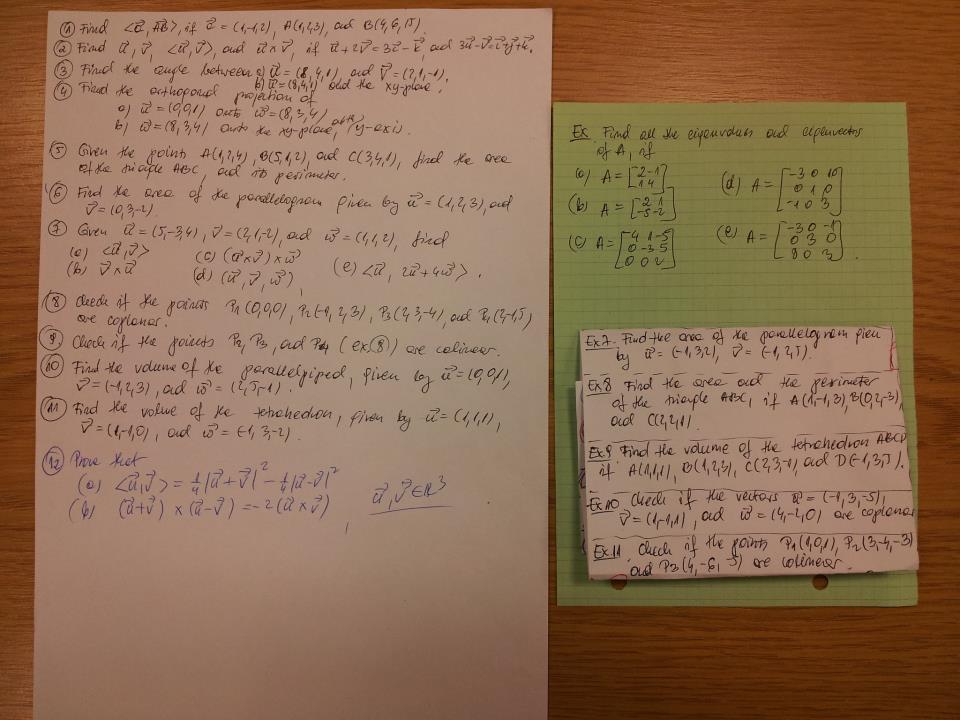 ① Find <u⃗, AB⃗>, if u⃗ = (1,-1,2), A(1,2,3), and B(4,6,5).
② Find u⃗, v⃗, <u⃗, v⃗>, and u⃗×v⃗, if u⃗+2v⃗ = 3i⃗-k⃗, and 3u⃗-v⃗ = i⃗+j⃗+k⃗.
③ Find the angle between a) u⃗ = (8,4,1) and v⃗ = (2,1,-1),
b) u⃗ = (8,4,1) and the xy-plane.
④ Find the orthogonal projection of
a) u⃗ = (0,0,1) onto w⃗ = (8,3,4)
b) w⃗ = (8,3,4) onto the xy-plane, (y-axis).
⑤ Given the points A(1,2,4), B(5,1,2), and C(3,4,1), find the area
of the triangle ABC, and its perimeter.
⑥ Find the area of the parallelogram given by u⃗ = (1,2,3), and
v⃗ = (0,3,-2).
⑦ Given u⃗ = (5,-3,4), v⃗ = (2,1,-2), and w⃗ = (1,1,2), find
(a) <u⃗, v⃗> (c) (u⃗×v⃗)×w⃗
(b) v⃗×u⃗ (d) (u⃗, v⃗, w⃗), (e) <u⃗, 2u⃗+4w⃗>.
⑧ Check if the points P1(0,0,0), P2(-1,2,3), P3(2,3,-4), and P4(2,-1,5)
are coplanar.
⑨ Check if the points P2, P3, and P4 (ex.⑧) are colinear.
⑩ Find the volume of the parallelpiped, given by u⃗ = (0,0,1),
v⃗ = (-1,2,3), and w⃗ = (2,5,-1).
⑪ Find the volume of the tetrahedron, given by u⃗ = (1,1,1),
v⃗ = (1,-1,0), and w⃗ = (-1,3,-2).
⑫ Prove that
(a) <u⃗,v⃗> = 1/4|u⃗+v⃗|² - 1/4|u⃗-v⃗|²
(b) (u⃗+v⃗)×(u⃗-v⃗) = -2(u⃗×v⃗), u⃗,v⃗∈R³
Ex Find all the eigenvalues and eigenvectors
of A, if
(a) A = [2 -1
1 4]
(b) A = [2 1
-5 -2]
(c) A = [4 1 -5
0 -3 5
0 0 2]
(d) A = [-3 0 10
0 1 0
-1 0 3]
(e) A = [-3 0 -1
0 3 0
8 0 3].
Ex7. Find the area of the parallelogram given
by u⃗ = (-1,3,2), v⃗ = (-1,2,5).
Ex8 Find the area and the perimeter
of the triangle ABC, if A(1,-1,3), B(0,2,-3),
and C(2,2,1)
Ex9 Find the volume of the tetrahedron ABCD
if A(1,1,1), B(1,2,3), C(2,3,-1) and D(-1,3,5).
Ex10 Check if the vectors u⃗ = (-1,3,-5),
v⃗ = (1,-1,1), and w⃗ = (4,-2,0) are coplanar
Ex11. Check if the points P1(1,0,1), P2(3,-4,-3)
and P3(4,-6,-5) are colinear.